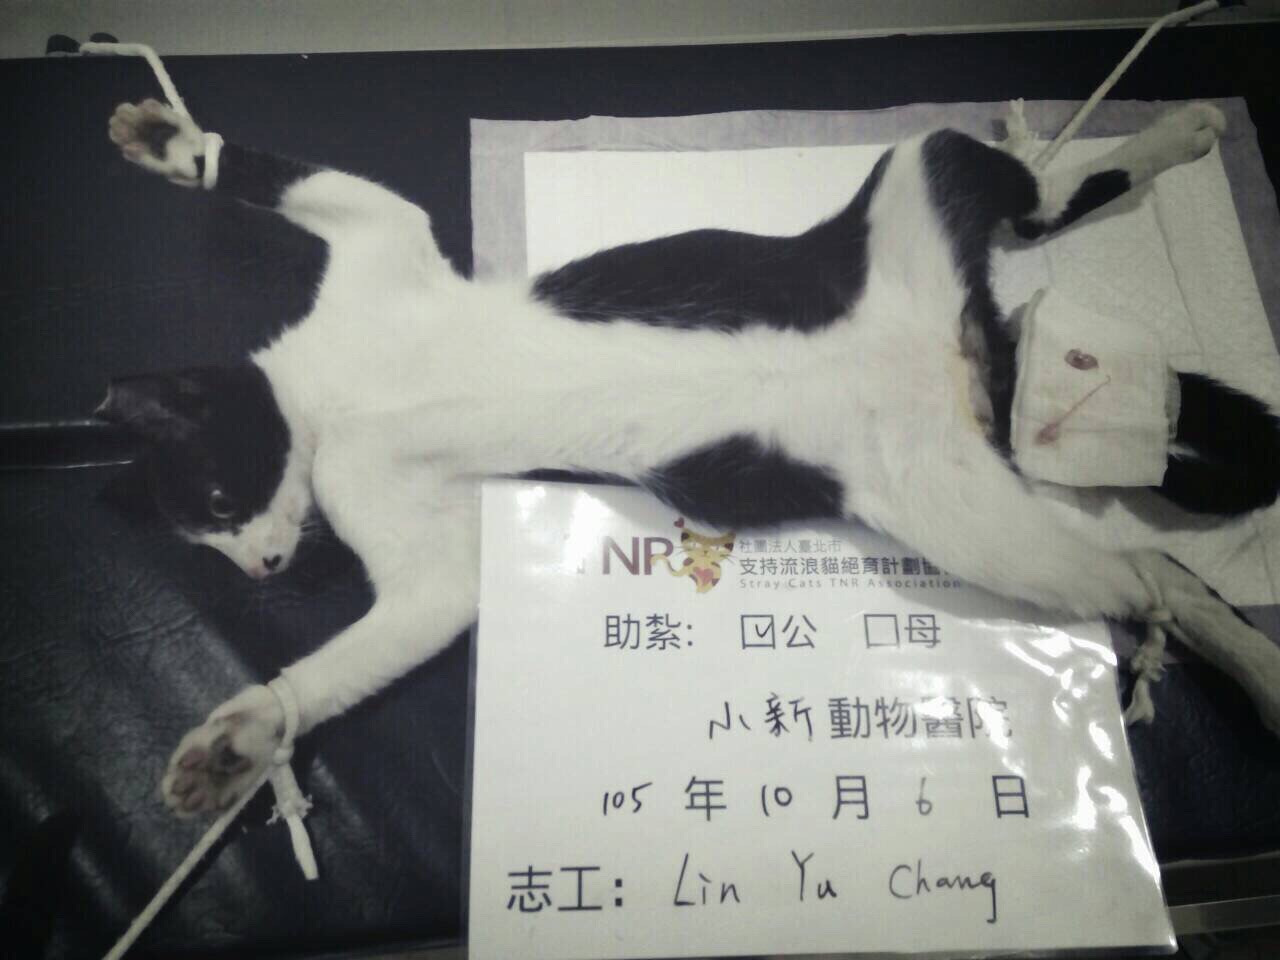 TNR
社團法人臺北市
支持流浪貓絕育計劃協
Stray Cats TNR Association
助紮: ☑公 □母
小新動物醫院
105年10月6日
志工: Lin Yu Chang